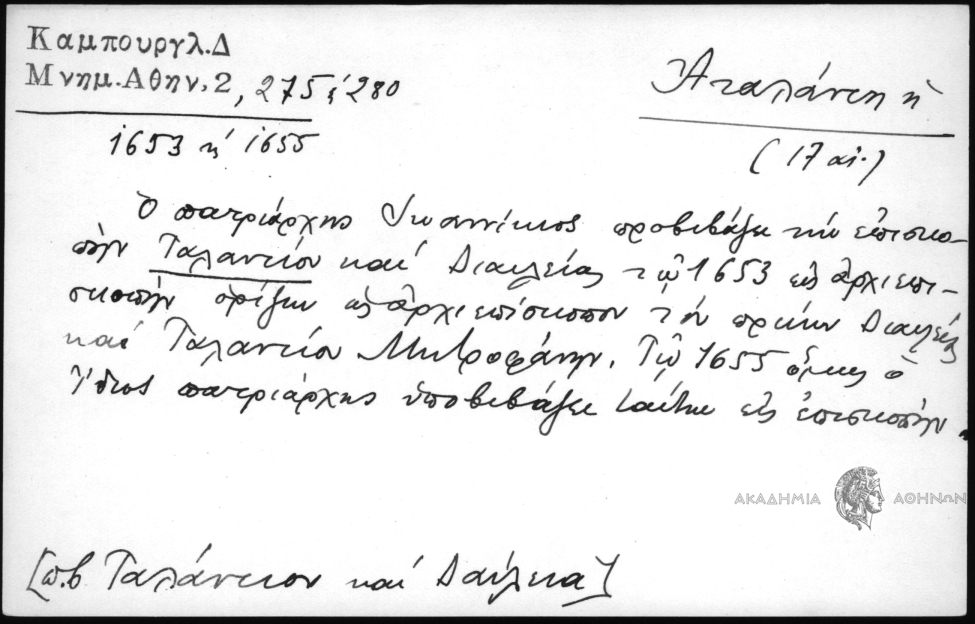 Καμπουργλ.Δ
Μνημ.Αθην.2, 275 & 280
Ἀταλάντη ἡ
1653 ἡ 1655
(17 αἰ.)
Ὁ πατριάρχης Ἰωαννίκιος προβιβάζει τὴν ἐπισκο-
πὴν Ταλαντίου καὶ Διαυλείας τῷ 1653 εἰς ἀρχιεπι-
σκοπὴν ὁρίζων ὡς ἀρχιεπίσκοπον τὸν πρώην Διαυλείας
καὶ Ταλαντίου Μητροφάνην. Τῷ 1655 ὅμως ὁ
ἴδιος πατριάρχης ὑποβιβάζει ταύτην εἰς ἐπισκοπήν.
ΑΚΑΔΗΜΙΑ ΑΘΗΝΩΝ
[π.β Ταλάντιον καὶ Δαύλεια]